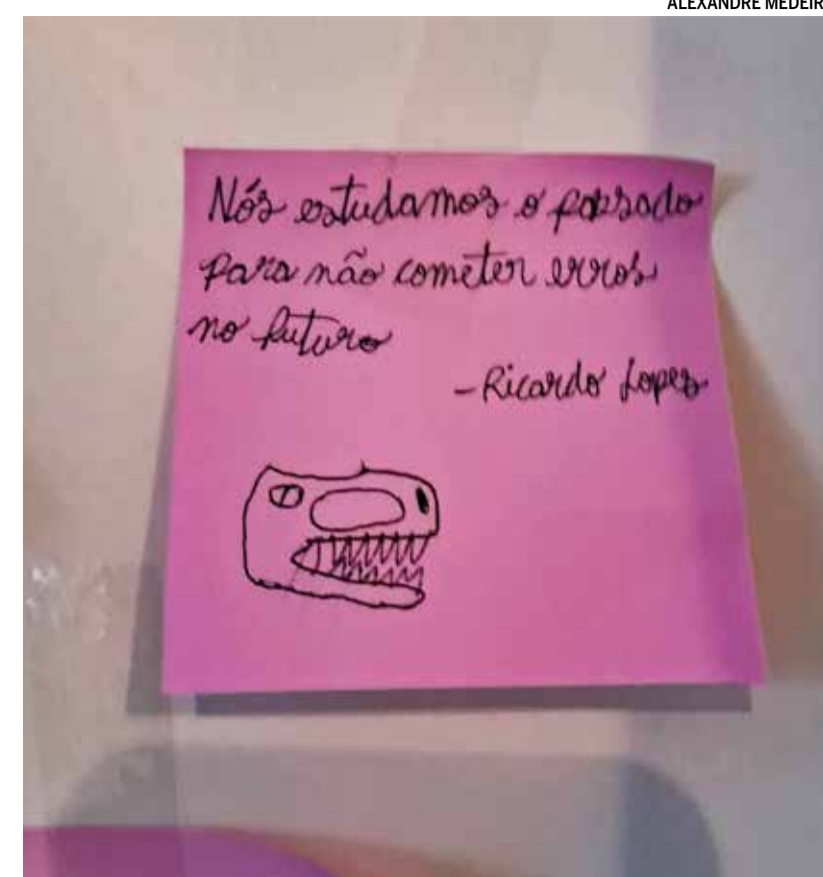 ALEXANDRE MEDEIR
Nós estudamos o passado
para não cometer erros
no futuro
-Ricardo Lopes